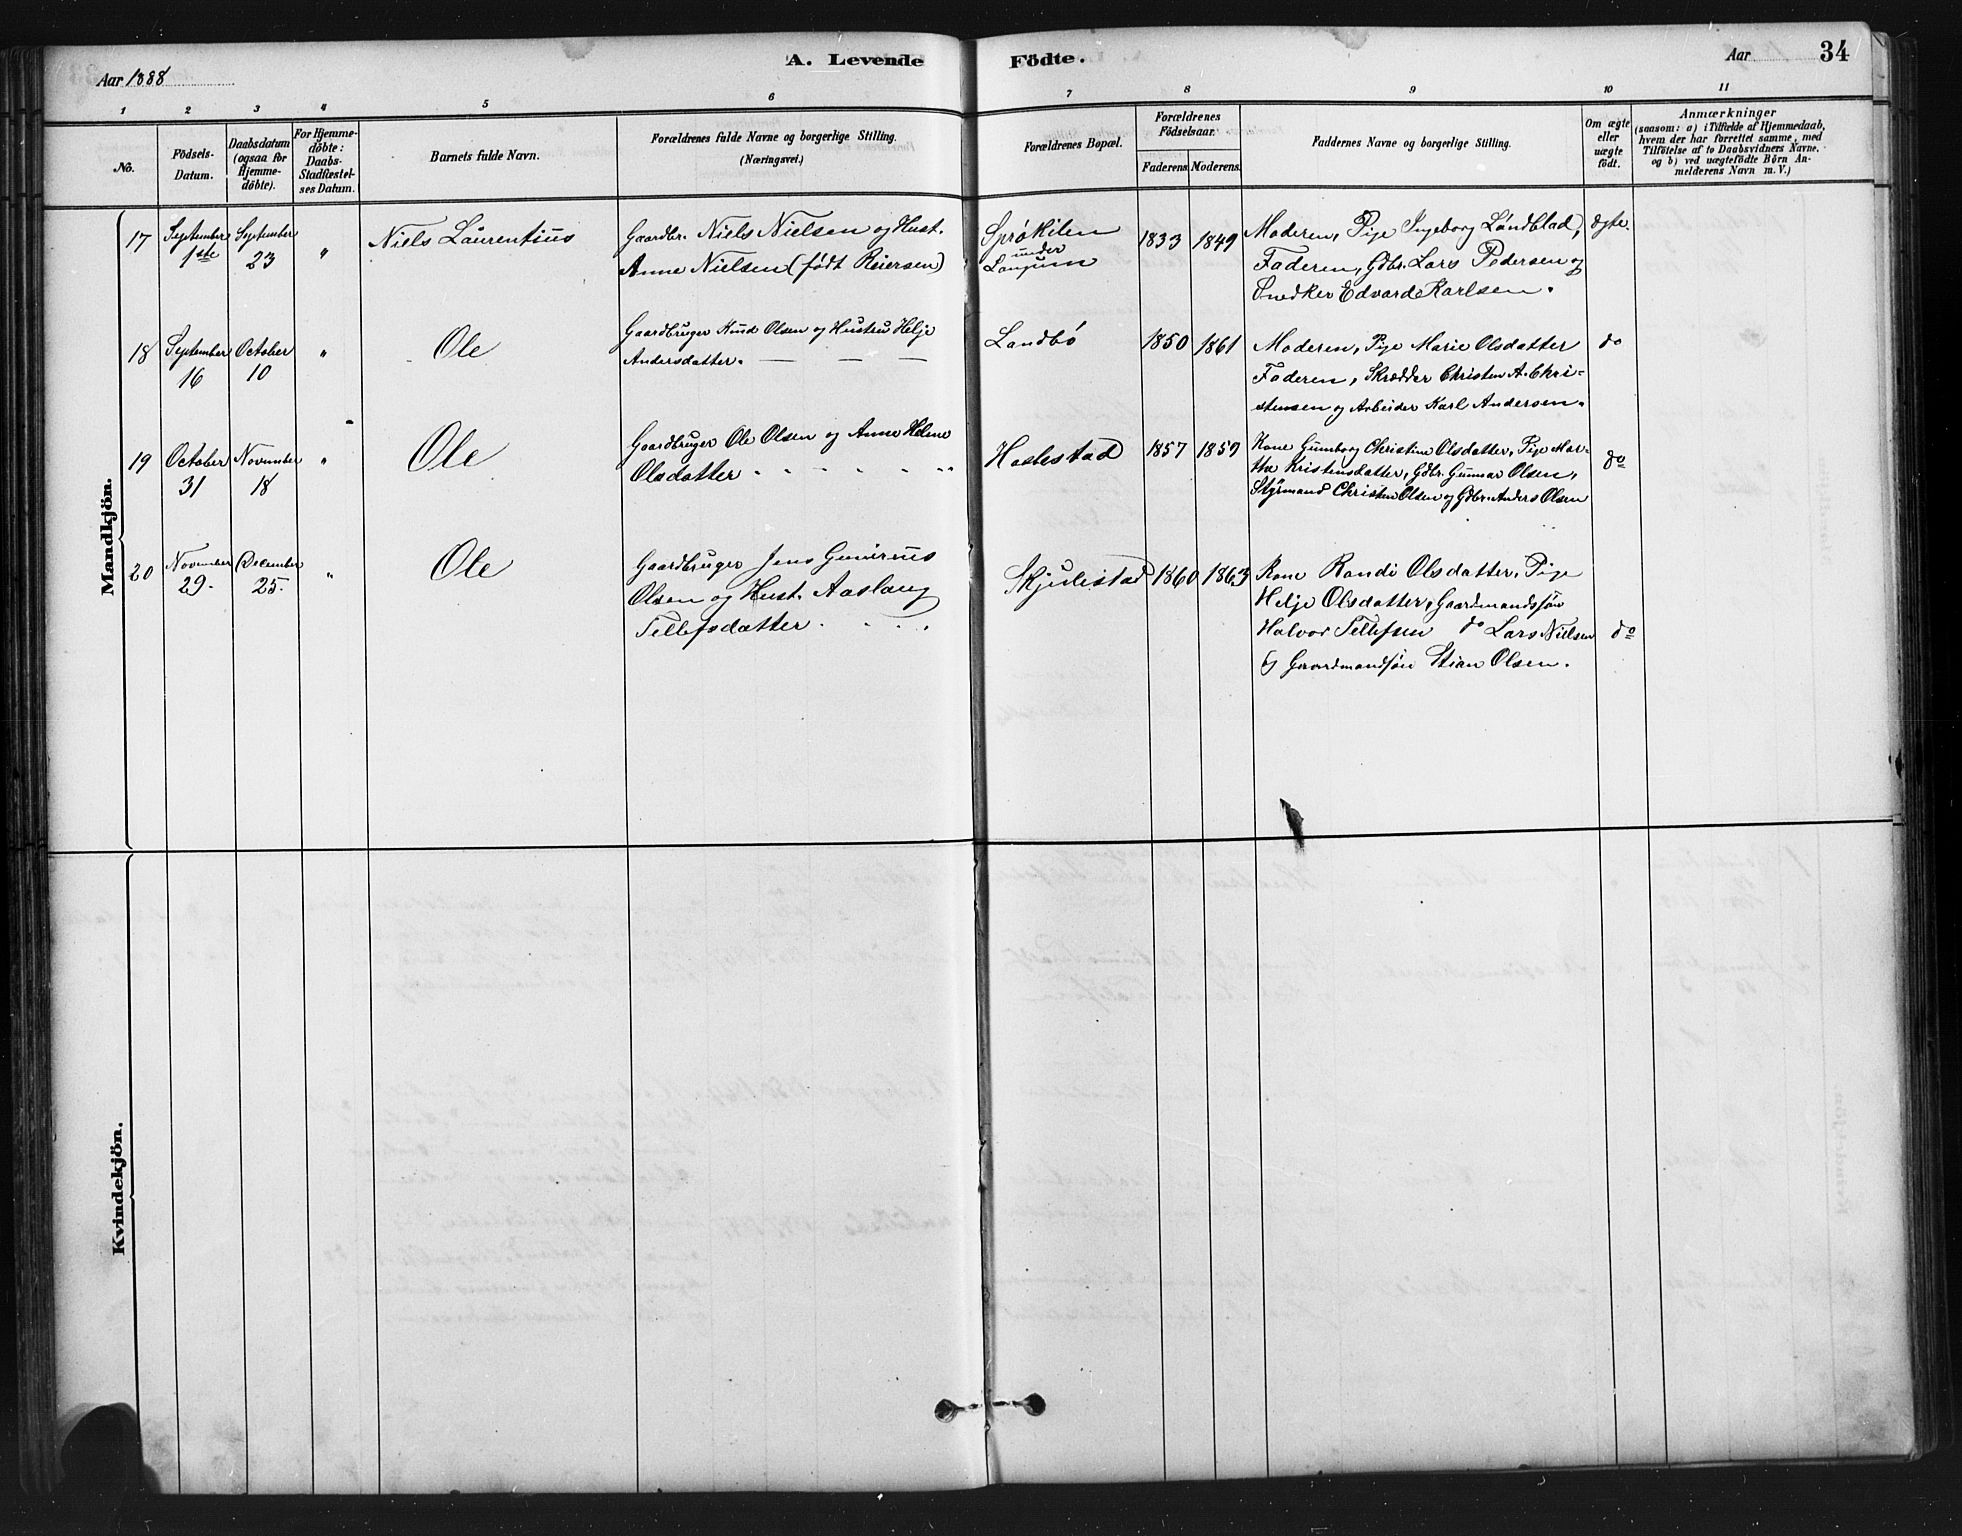 Aar 1888
A. Levende
Födte.
Aar
34
1 2 3 4 5 6 7 8 9 10 11
No.
Födsels-
Datum.
Daabsdatum
(ogsaa for
Hjemme-
döbte).
For Hjemme-
döbte:
Daabs-
Stadfæstel-
ses Datum.
Barnets fulde Navn.
Forældrenes fulde Navne og borgerlige Stilling.
(Næringsvei.)
Forældrenes Bopæl.
Forældrenes
Födselsaar.
Faderens. Moderens.
Faddernes Navne og borgerlige Stilling.
Om ægte
eller
uægte
födt.
Anmærkninger
(saasom: a) i Tilfælde af Hjemmedaab,
hvem der har forrettet samme, med
Tilföielse af to Daabsvidners Navne.
og b) ved uægtefödte Börn An-
melderens Navn m. V.)
Mandkjön.
17
September
1ste
September
23
"
Niels Laurentius
Gaardbr. Niels Nielsen og Hust.
Anne Nielsen (født Reiersen)
Sprøkilen
under
Langum
1833
1849
Moderen, Pige Ingeborg Landblad,
Faderen, Gdbr. Lars Pedersen og
Snedker Edvard Karlsen.
ægte.
18
September
16
October
10
"
Ole
Gaardbruger Knud Olsen og Hustru Helje
Andersdatter. — — —
Landbø
1850
1861
Moderen, Pige Marie Olsdatter
Faderen, Skrædder Christen A. Chri-
stensen og Arbeider Karl Andersen.
do
19
October
31
November
18
"
Ole
Gaardbruger Ole Olsen og Anne Helene
Olsdatter
1857
1859
Kone Gunborg Christine Olsdatter, Pige Mar-
the Kristensdatter, Gdbr. Gunnar Olsen,
Styrmand Christen Olsen og Gdbr. Anders Olsen
do
20
November
29.
December
25.
"
Ole
Gaardbruger Jens
Olsen og Hust. Aaslaug
Tellefsdatter
Skjulestad
1860
1863
Kone Randi Olsdatter, Pige
Helje Olsdatter, Gaardmandssøn
Halvor Tellefsen do Lars Nielsen
og Gaardmandssøn Stian Olsen.
do
Kvindekjön.